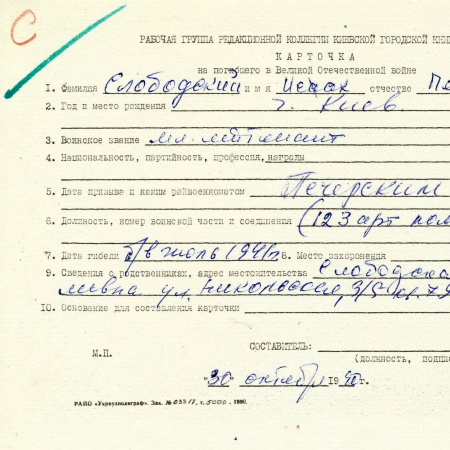 С
РАБОЧАЯ ГРУППА РЕДАКЦИОННОЙ КОЛЛЕГИИ КИЕВСКОЙ ГОРОДСКОЙ КНИ
КАРТОЧКА
на погибшего в Великой Отечественной войне
1. Фамилия Слободский имя Исаак отчество
2. Год и место рождения г. Киев
3. Воинское звание мл. лейтенант
4. Национальность, партийность, профессия, награды
5. Дата призыва и каким райвоенкоматом Печерским
6. Должность, номер воинской части и соединения (123 арт пол
7. Дата гибели б/в июль 1941г. 8. Место захоронения
9. Сведения о родственниках, адрес местожительства Слободская
ул. Никольская, 3/5 кв. 79
10. Основание для составления карточки
СОСТАВИТЕЛЬ:
М.П. (должность, подпи
"30" октября 1990г.
РАПО «Укрвузполиграф». Зак. № 03317, т. 5000, 1990.